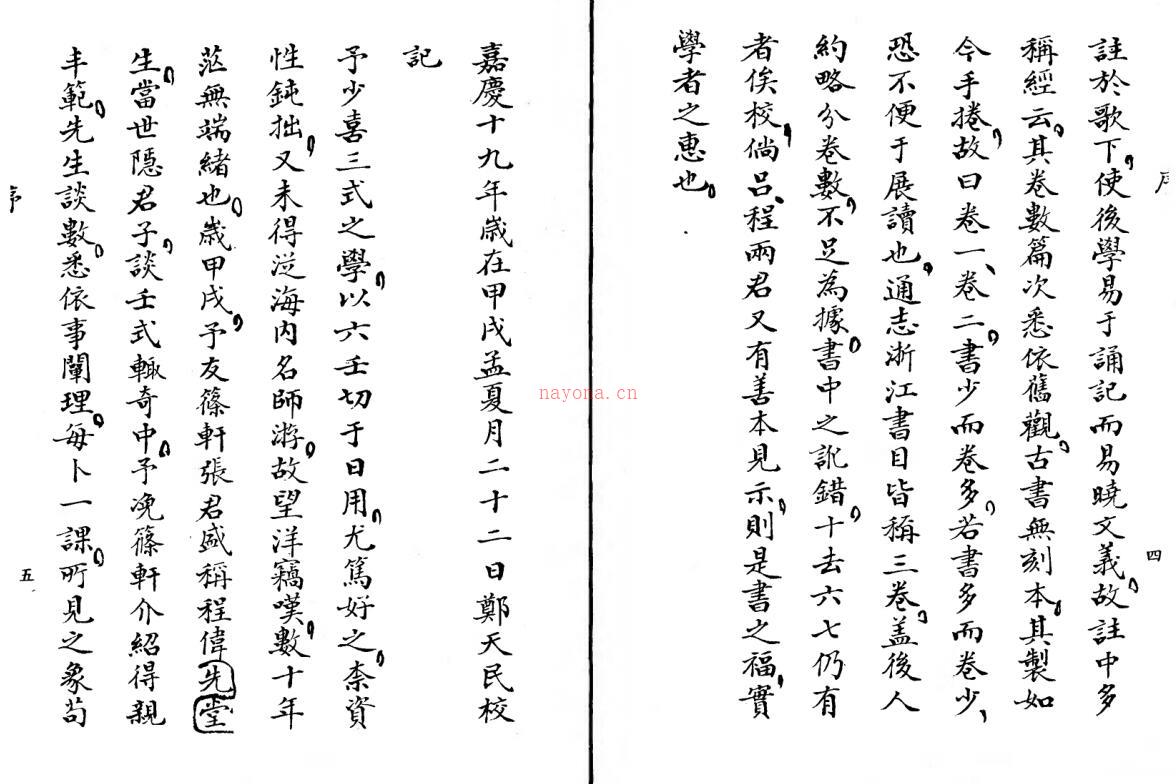 序
四
註於歌下，使後學易于誦記而易曉文義，故註中多
稱經云，其卷數篇次悉依舊觀，古書無刻本，其製如
今手捲，故曰卷一、卷二，書少而卷多，若書多而卷少、
恐不便于展讀也，通志浙江書目皆稱三卷，盖後人
約略分卷數，不足為據。書中之訛錯，十去六七仍有
者俟校，倘呂、程兩君又有善本見示，則是書之福，實
學者之惠也。
嘉慶十九年歲在甲戌孟夏月二十二日鄭天民校
記
予少喜三式之學，以六壬切于日用，尤篤好之，柰資
性鈍拙，又未得從海內名師游，故望洋竊嘆，數十年
茫無端緒也。歲甲戌，予友篠軒張君盛稱程偉先堂
生，當世隱君子，談壬式輒奇中，予浼篠軒介紹得親
丰範，先生談數，悉依事闡理，每卜一課，所見之象苟
序
五
nayona.cn